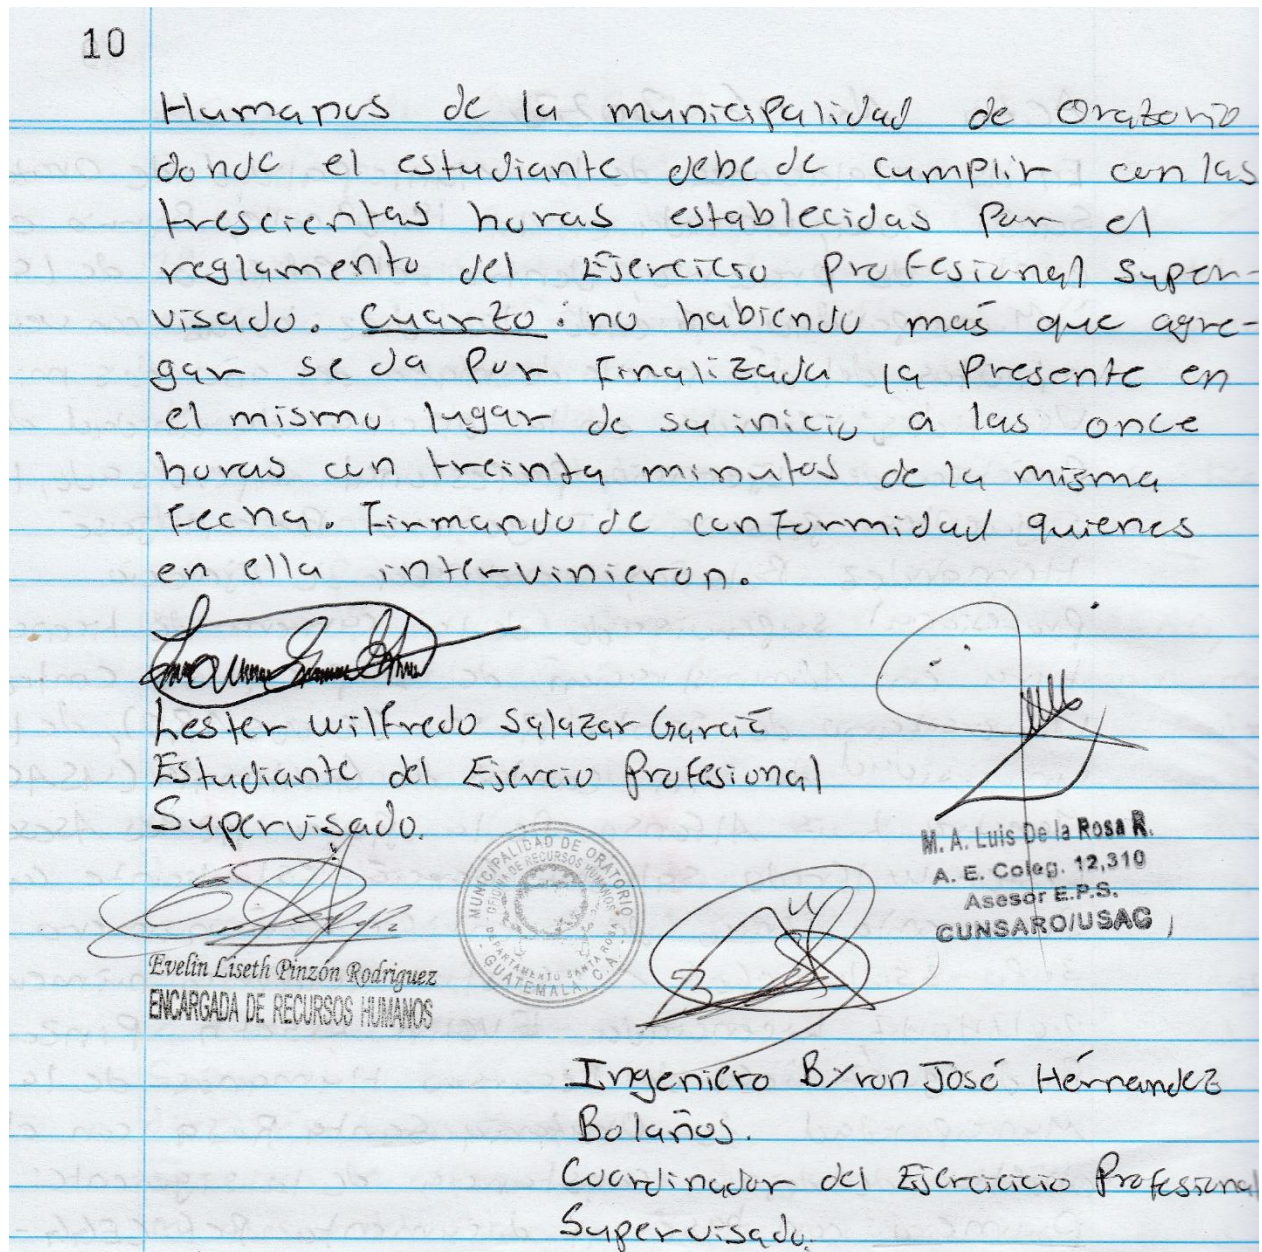 10
Humanos de la municipalidad de Oratorio
donde el estudiante debe de cumplir con las
trescientas horas establecidas por el
reglamento del Ejercicio Profesional Super-
visado. Cuarto: no habiendo más que agre-
gar se da por finalizada la presente en
el mismo lugar de su inicio a las once
horas con treinta minutos de la misma
fecha. Firmando de conformidad quienes
en ella intervinieron.
Lester Wilfredo Salazar García
Estudiante del Ejercio Profesional
Supervisado.
M. A. Luis De la Rosa R.
A. E. Coleg. 12,310
Asesor E.P.S.
CUNSARO/USAC
MUNICIPALIDAD DE ORATORIO
OFICINA DE RECURSOS HUMANOS
DEPARTAMENTO SANTA ROSA
GUATEMALA, C.A.
Evelin Liseth Pinzón Rodriguez
ENCARGADA DE RECURSOS HUMANOS
Ingeniero Byron José Hérnandez
Bolaños.
Coordinador del Ejercicicio Profesional
Supervisado.